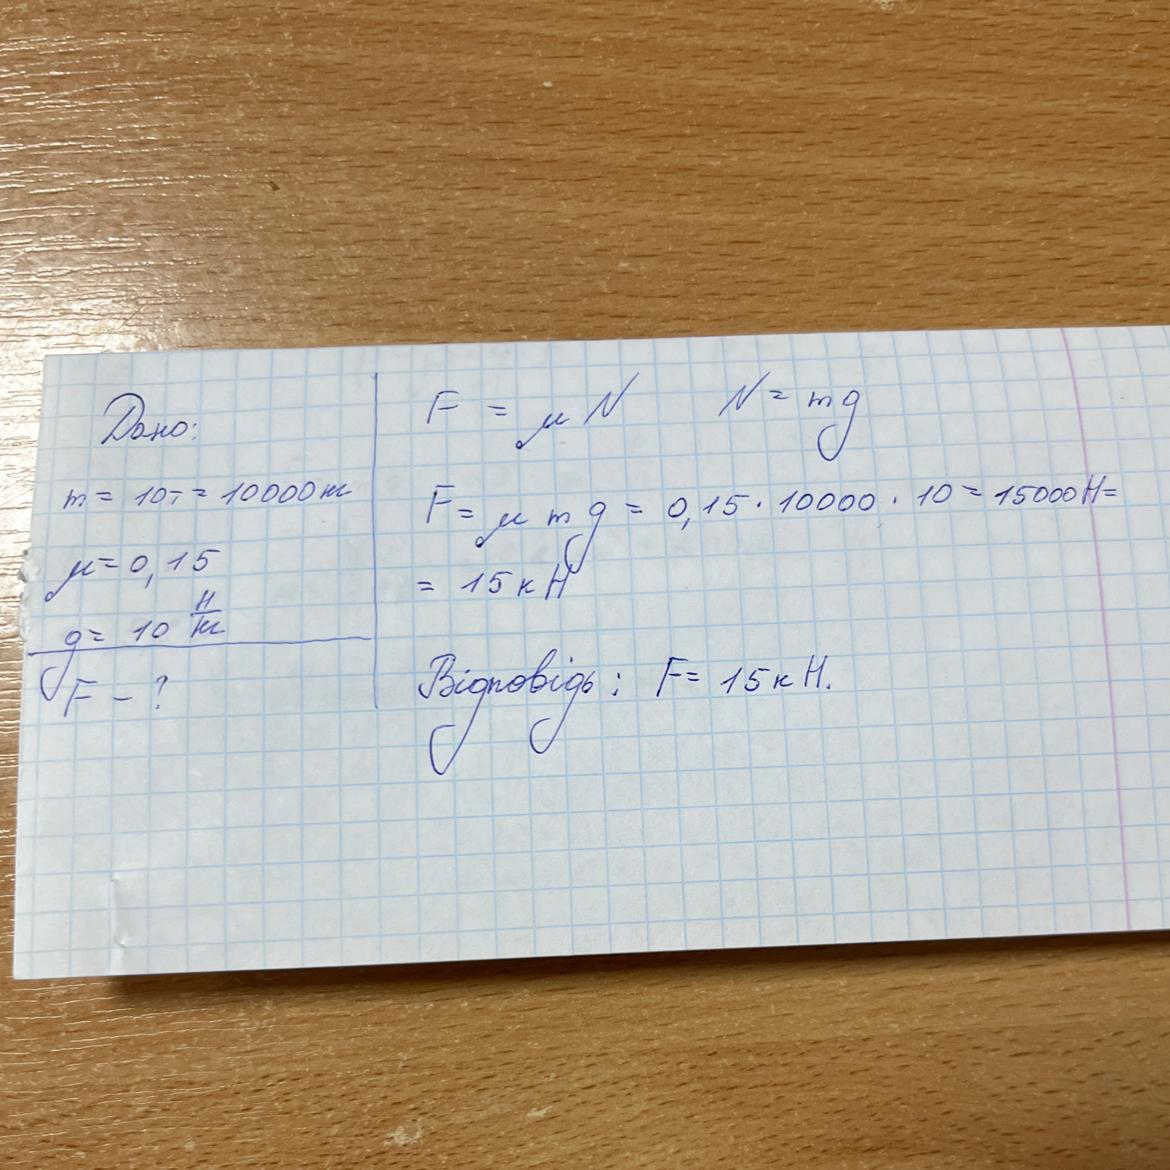 Дано:
m = 10т = 10000кг
μ = 0,15
g = 10 Н/кг
F - ?
F = μ N    N = mg
F = μ m g = 0,15 · 10000 · 10 = 15000Н =
= 15 кН
Відповідь: F = 15 кН.